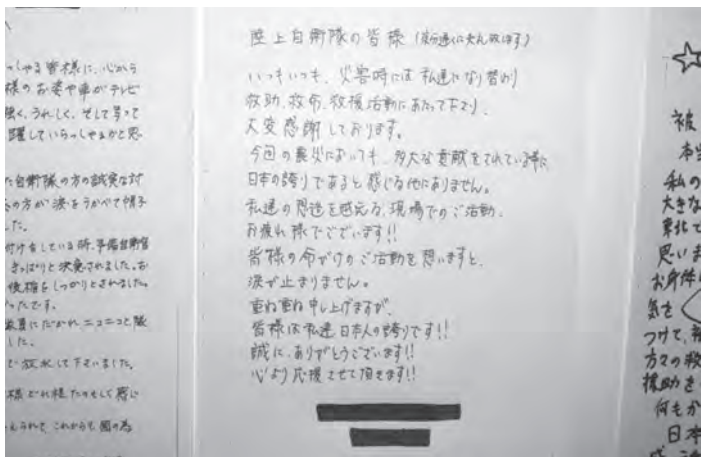 っしゃる皆様に、心から
様のお姿や車がテレビ
強く、うれしく、そして
躍していらっしゃるかと思
た自衛隊の方の誠実な対
の方が涙をうかべて帽子
した。
付けをしている時、予備自衛官
きっぱりと決意されました。お
後押をしっかりとされました。
ったです。
隊員にだかれニコニコと
した。
放水して下さいました。
これからも国の為
陸上自衛隊の皆様
いつもいつも、災害時には私達になり替わり
救助、救命、救援活動にあたって下さり、
大変感謝しております。
今回の震災においても、多大な貢献をされている姿に
日本の誇りであると感じる他にありません。
私達の想造を越える、現場でのご活動、
お疲れ様でございます!!
皆様の命がけのご活動を想いますと、
涙が止まりません。
重ね重ね申し上げますが、
皆様は私達日本人の誇りです!!
誠に、ありがとうございます!!
心より応援させて頂きます!!
☆
被
本当
私の
大きな
東北で
思いま
お身体
気を
つけて、
方々の救
援助を
何もか
日本